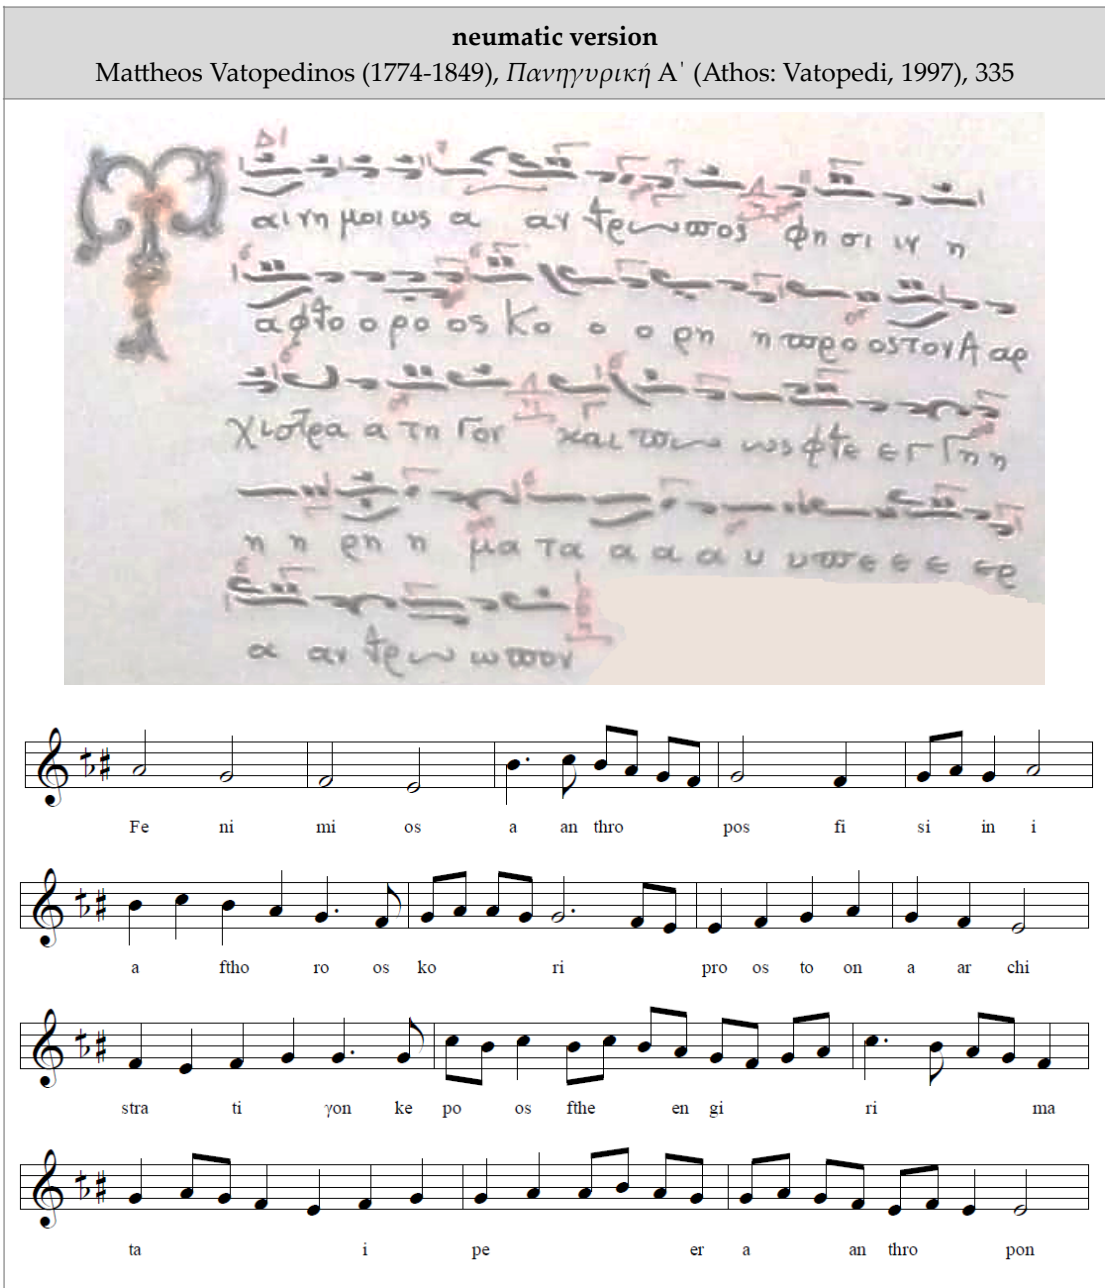 neumatic version
Mattheos Vatopedinos (1774-1849), Πανηγυρική Α΄ (Athos: Vatopedi, 1997), 335
αι νη μοι ως α αν θρω πος φη σι ιν η
α φθο ο ρο ος Κο ο ο ρη η προ ος τον Α αρ
χι στρα α τη γον και πω ως φθε εγ γη η
η η ρη η μα τα α α α υ υπε ε ε ερ
α αν θρω ω πον
Fe ni mi os a an thro pos fi si in i
a ftho ro os ko ri pro os to on a ar chi
stra ti γon ke po os fthe en gi ri ma
ta i pe er a an thro pon